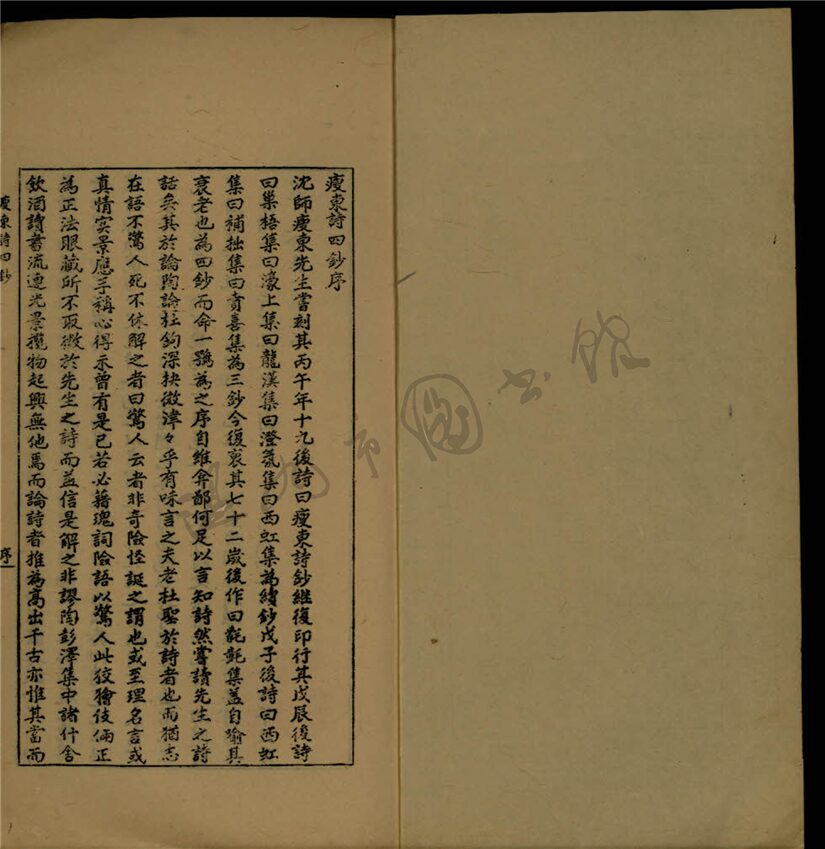 瘦東詩四鈔序
沈師瘦東先生嘗刻其丙午年十九後詩曰瘦東詩鈔繼復印行其戊辰後詩
曰巢梧集曰濠上集曰龍漢集曰澄氛集曰西虹集為續鈔戊子後詩曰西虹
集曰補拙集曰賁喜集為三鈔今復裒其七十二歲後作曰毷氉集蓋自喻其
衰老也為四鈔而命一鶚為之序自維弇鄙何足以言知詩然嘗讀先生之詩
話矣其於論陶論杜鉤深抉微津々乎有味言之夫老杜聖於詩者也而猶志
在語不驚人死不休解之者曰驚人云者非奇險怪誕之謂也或至理名言或
真情實景應手稱心得未曾有是已若必藉瑰詞險語以驚人此狡獪伎倆正
為正法眼藏所不取徵於先生之詩而益信是解之非謬陶彭澤集中諸什舍
飲酒讀書流連光景攬物起興無他焉而論詩者推為高出千古亦惟其當而
瘦東詩四鈔
序一
市圖書館